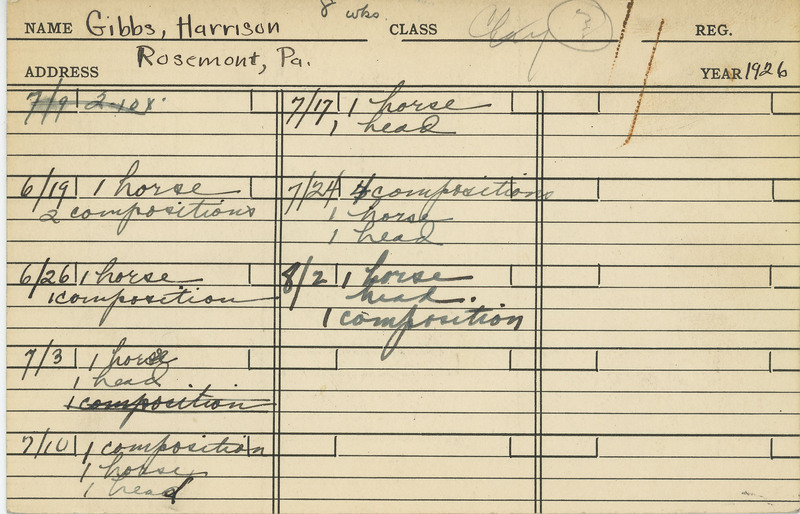 8 wks.
NAME Gibbs, Harrison CLASS Clay 3 REG.
ADDRESS Rosemont, Pa. YEAR 1926
7/9 2 10x.
6/19 1 horse
2 compositions
6/26 1 horse
1 composition
7/3 1 horse
1 head
1 composition
7/10 1 composition
1 horse
1 head
7/17 1 horse
1 head
7/24 4 compositions
1 horse
1 head
8/2 1 horse
head.
1 composition